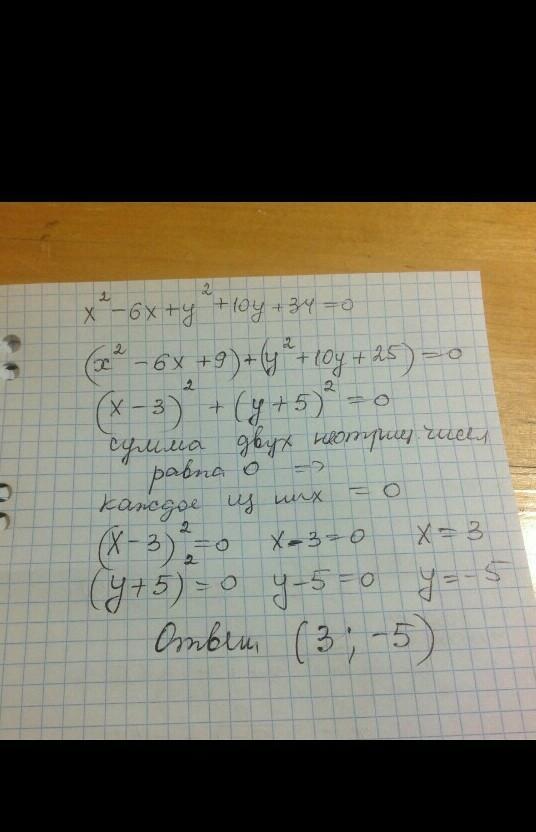 x² - 6x + y² + 10y + 34 = 0
(x² - 6x + 9) + (y² + 10y + 25) = 0
(x - 3)² + (y + 5)² = 0
сумма двух неотриц. чисел
равна 0 =>
каждое из них = 0
(x - 3)² = 0 x - 3 = 0 x = 3
(y + 5)² = 0 y - 5 = 0 y = -5
Ответ (3 ; -5)